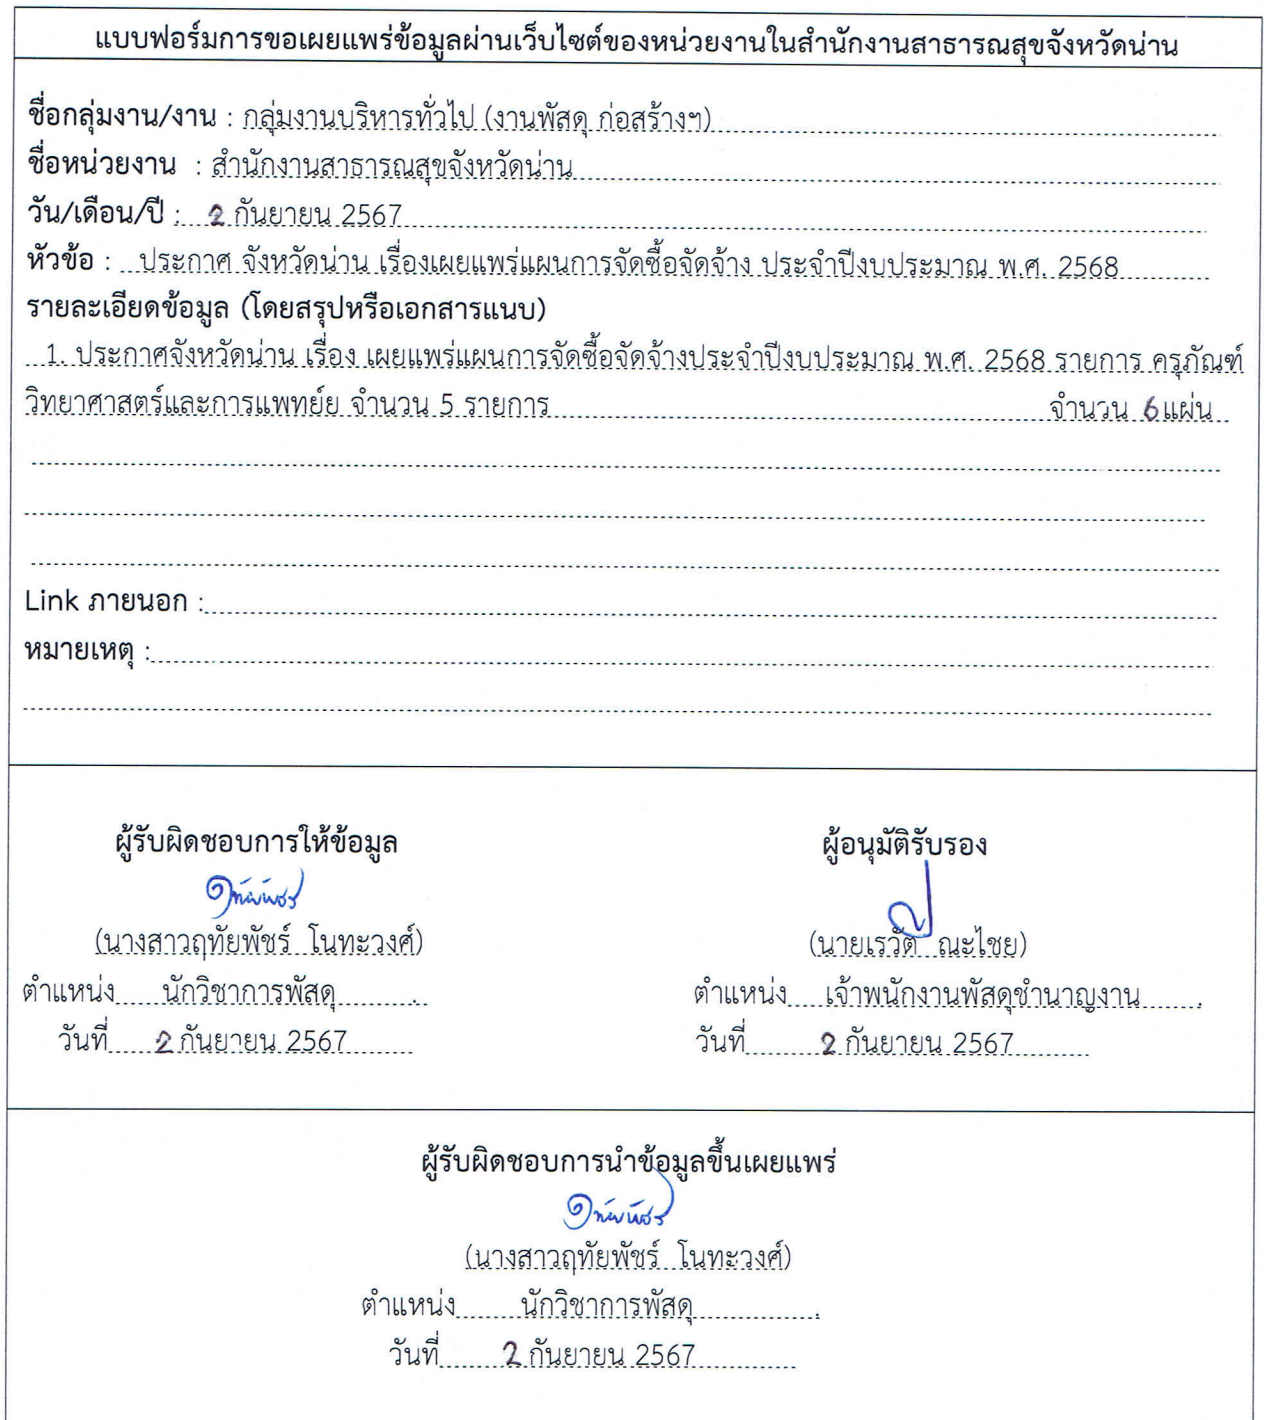 แบบฟอร์มการขอเผยแพร่ข้อมูลผ่านเว็บไซต์ของหน่วยงานในสำนักงานสาธารณสุขจังหวัดน่าน
ชื่อกลุ่มงาน/งาน : กลุ่มงานบริหารทั่วไป (งานพัสดุ ก่อสร้างฯ)
ชื่อหน่วยงาน : สำนักงานสาธารณสุขจังหวัดน่าน
วัน/เดือน/ปี : 2 กันยายน 2567
หัวข้อ : ประกาศ จังหวัดน่าน เรื่องเผยแพร่แผนการจัดซื้อจัดจ้าง ประจำปีงบประมาณ พ.ศ. 2568
รายละเอียดข้อมูล (โดยสรุปหรือเอกสารแนบ)
1. ประกาศจังหวัดน่าน เรื่อง เผยแพร่แผนการจัดซื้อจัดจ้างประจำปีงบประมาณ พ.ศ. 2568 รายการ ครุภัณฑ์
วิทยาศาสตร์และการแพทย์ย จำนวน 5 รายการ จำนวน 6 แผ่น
Link ภายนอก :
หมายเหตุ :
ผู้รับผิดชอบการให้ข้อมูล
ฤทัยพัชร์
(นางสาวฤทัยพัชร์ โนทะวงศ์)
ตำแหน่ง นักวิชาการพัสดุ
วันที่ 2 กันยายน 2567
ผู้อนุมัติรับรอง
(นายเรวัต ณะไชย)
ตำแหน่ง เจ้าพนักงานพัสดุชำนาญงาน
วันที่ 2 กันยายน 2567
ผู้รับผิดชอบการนำข้อมูลขึ้นเผยแพร่
ฤทัยพัชร์
(นางสาวฤทัยพัชร์ โนทะวงศ์)
ตำแหน่ง นักวิชาการพัสดุ
วันที่ 2 กันยายน 2567